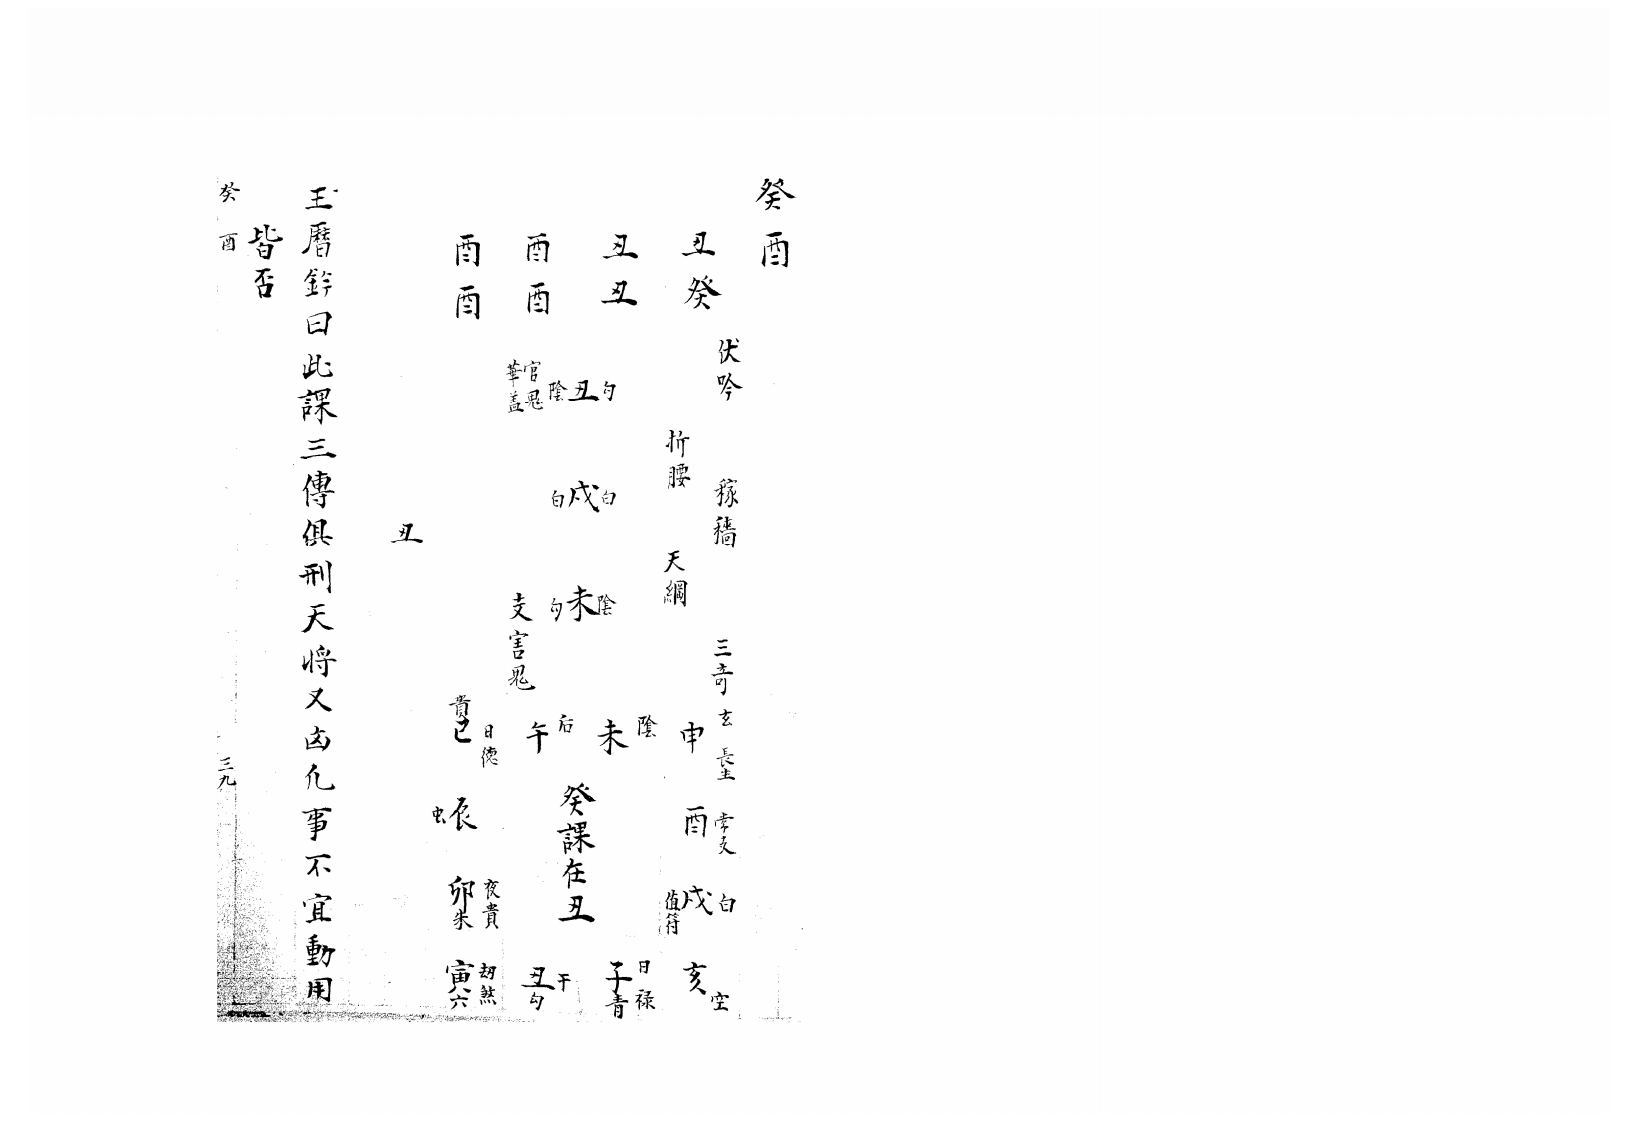 癸酉
丑癸
丑丑
酉酉
酉酉
伏吟
稼穡
三奇
折腰
天綱
勾丑陰
官鬼
華盖
白戌白
陰未勾
支害鬼
丑
貴巳
日德
午后
未陰
申玄
長生
虫辰
癸課在丑
酉
常支
卯朱
夜貴
戌白
值符
寅六
劫煞
丑勾
干
子青
日祿
亥空
玉曆鈐曰此課三傳俱刑天将又凶凢事不宜動用
皆否
癸酉
三九